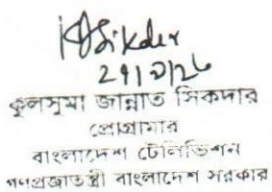 Sikder
কুলসুমা জান্নাত সিকদার
প্রোগ্রামার
বাংলাদেশ টেলিভিশন
গণপ্রজাতন্ত্রী বাংলাদেশ সরকার